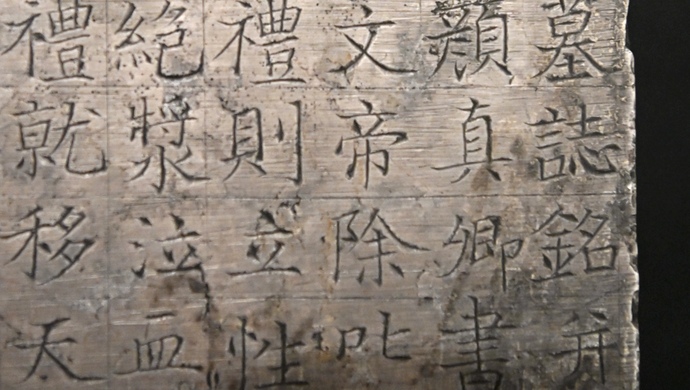 墓誌銘并
顏真卿書
文帝除叱
禮則立性
絕漿泣血
禮就移天